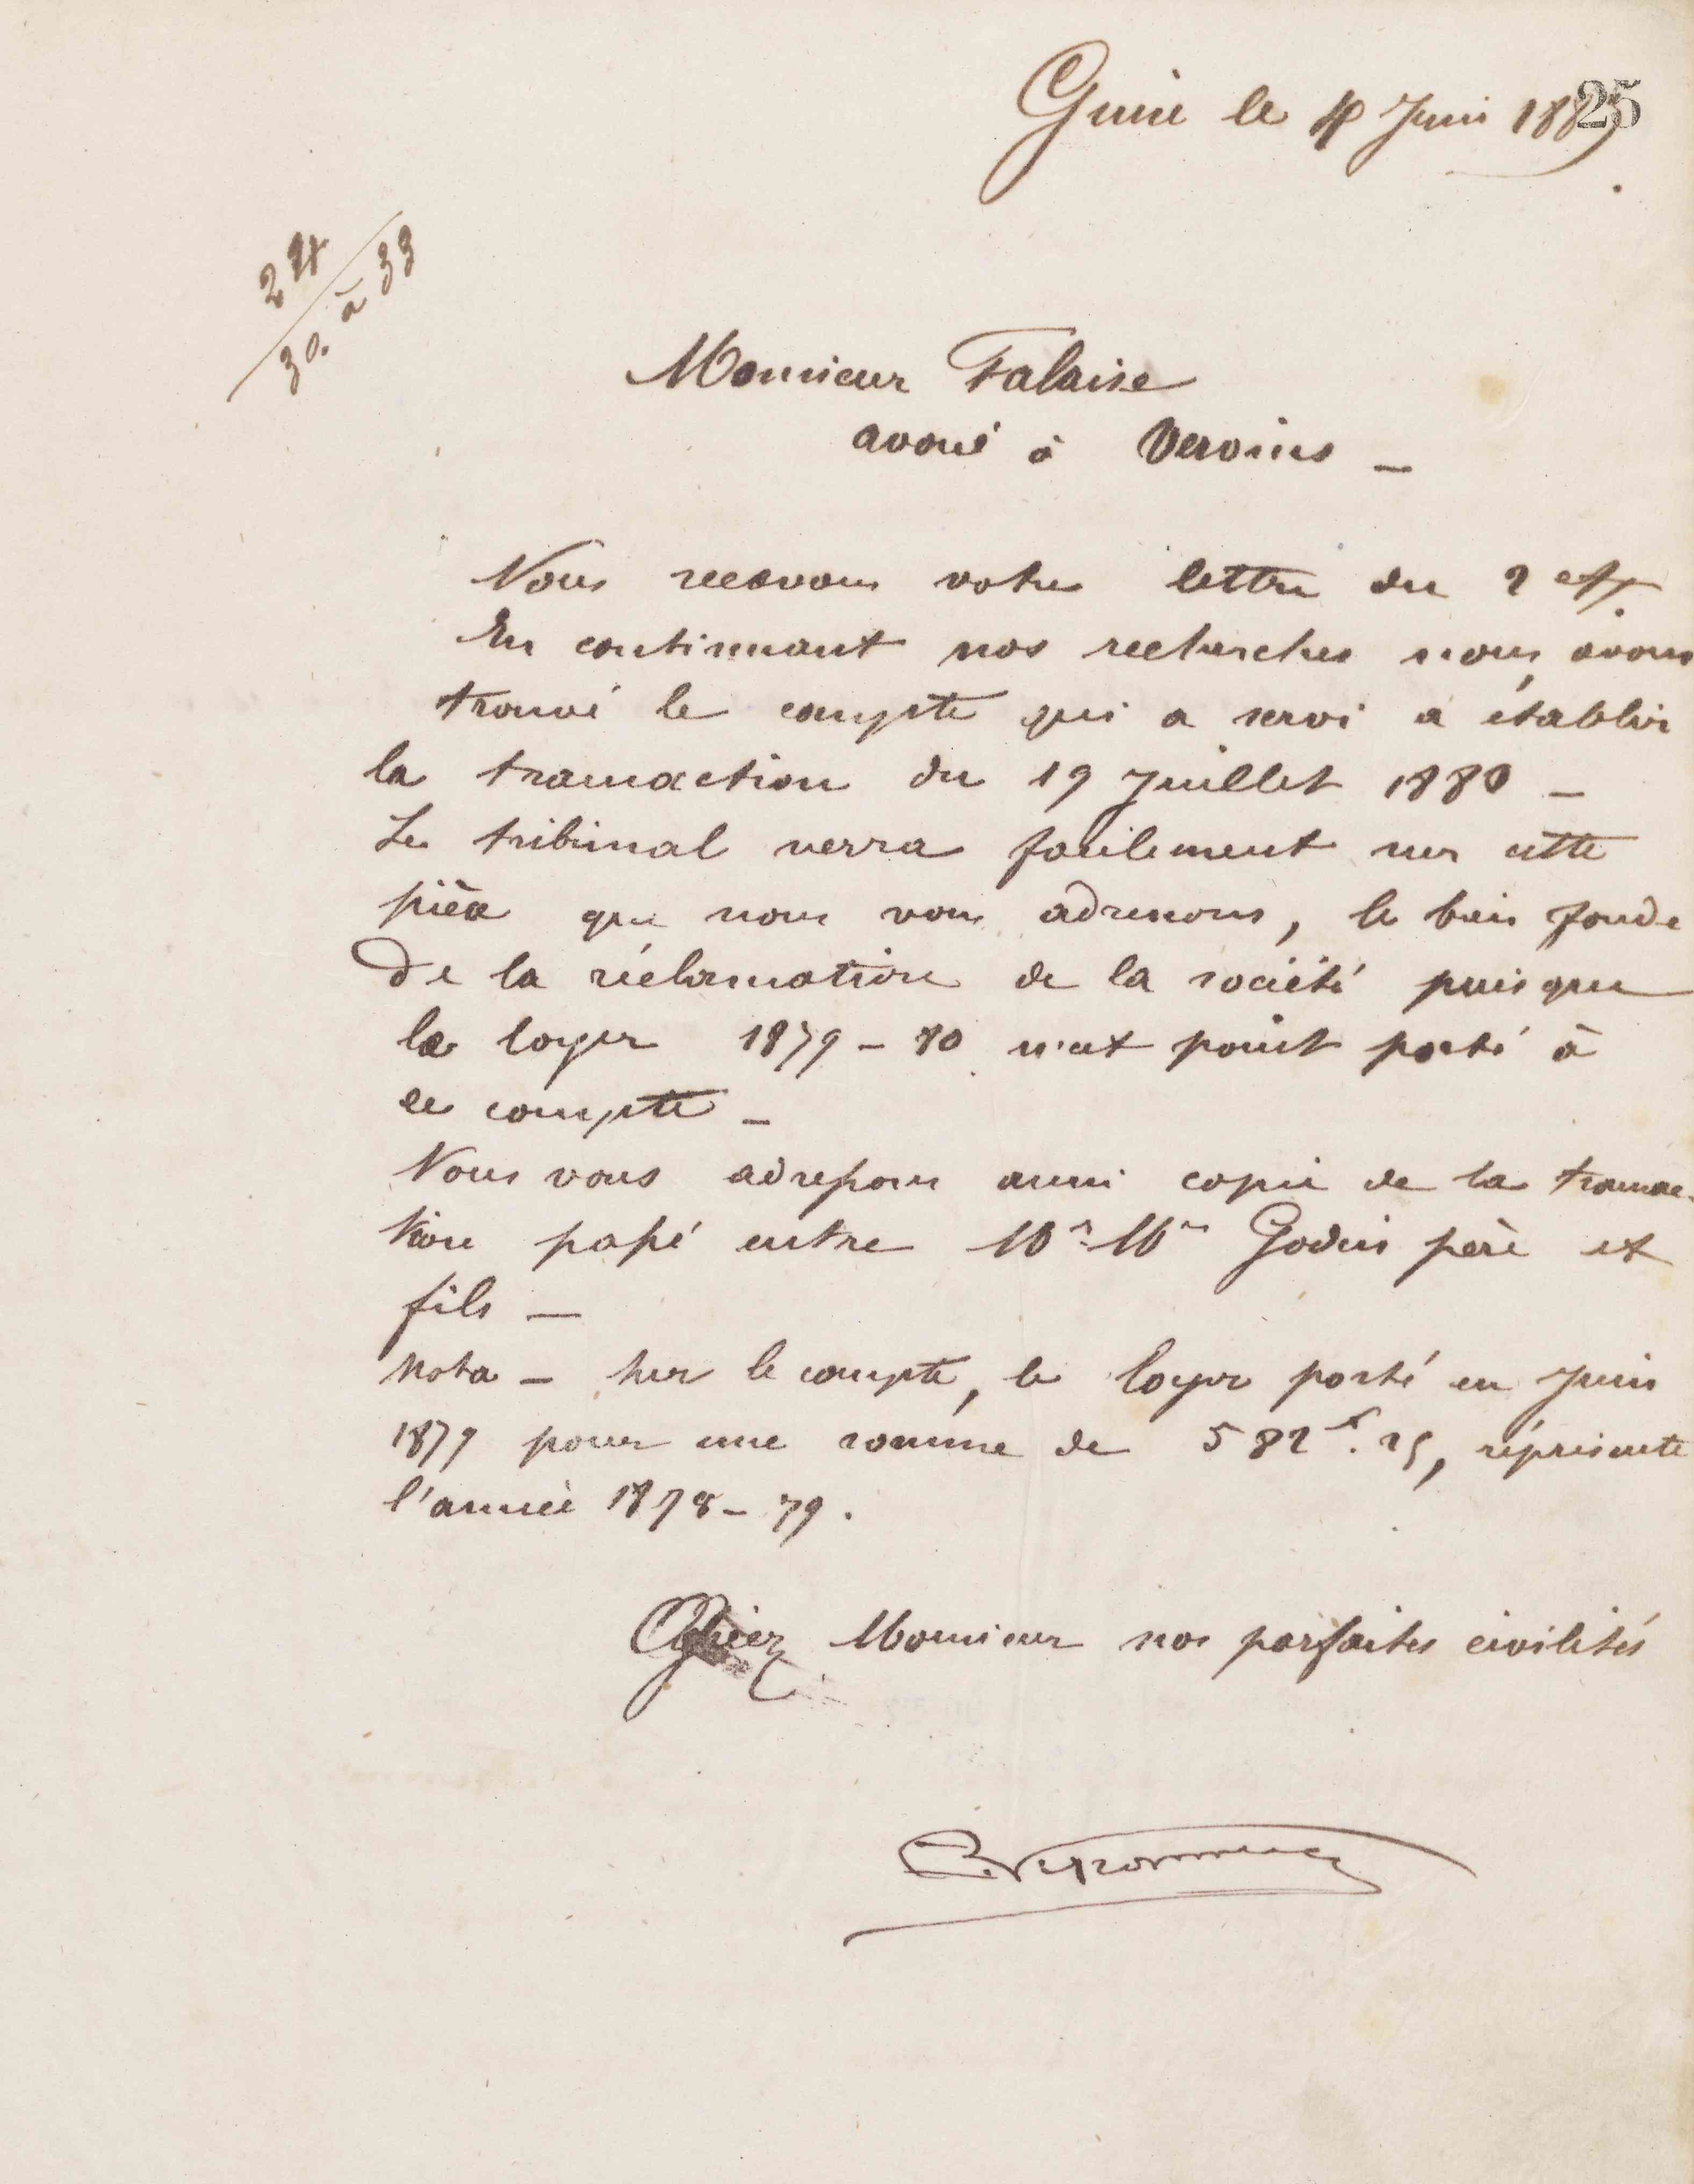 Guise le 4 Juin 188
25
24
30. à 33
Monsieur Falaise
avoué à Vervins _
Nous recevons votre lettre du 2 ct.
En continuant nos recherches nous avons
trouvé le compte qui a servi à établir
la transaction du 19 Juillet 1880 _
Le tribunal verra facilement sur cette
pièce que nous vous adressons, le bien fondé
de la réclamation de la société puisque
le loyer 1879 - 80 n'est point porté à
ce compte _
Nous vous adressons aussi copie de la transac-
tion passé entre Mr. Mr Godin père et
fils _
Nota _ Sur le compte, le loyer porté en Juin
1879 pour une somme de 582 f. 25, réprésente
l'année 1878 - 79.
Agréez Monsieur nos parfaites civilités